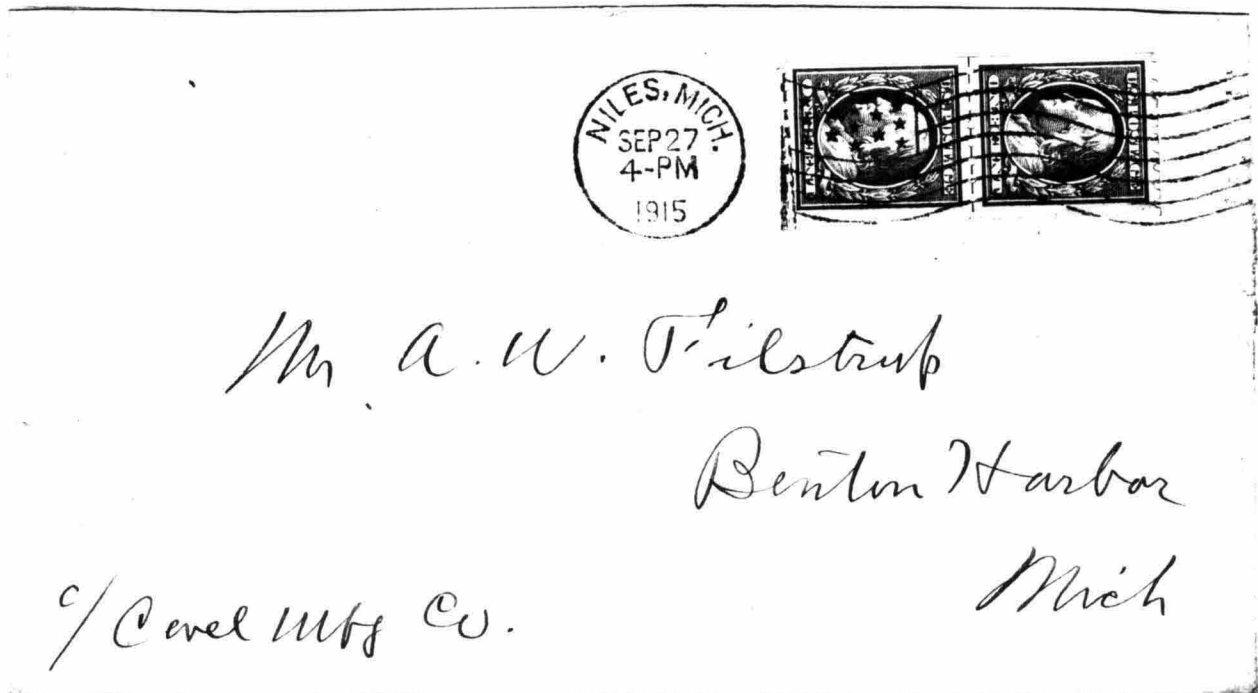 NILES, MICH.
SEP 27
4-PM
1915
Mr A. W. Filstrup
Benton Harbor
Mich
c/ Covel Mfg Co.